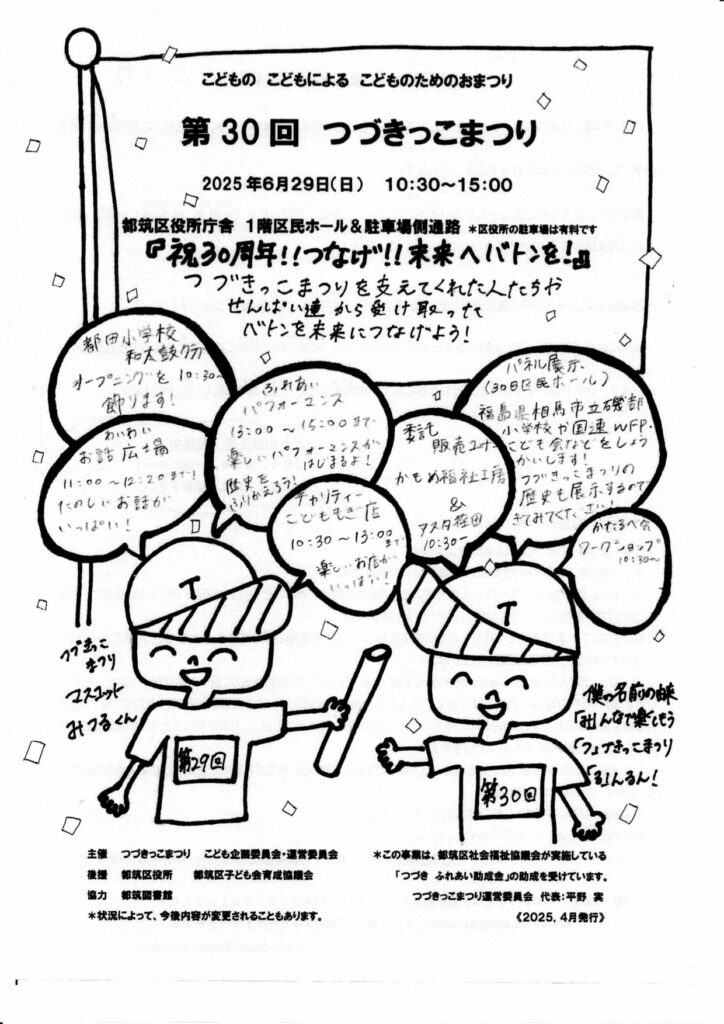 こどもの こどもによる こどものためのおまつり
第30回 つづきっこまつり
2025年6月29日(日) 10:30~15:00
都筑区役所庁舎 1階区民ホール&駐車場側通路 *区役所の駐車場は有料です
『祝30周年!!つなげ!!未来へバトンを!』
つづきっこまつりを支えてくれた人たちや
せんぱい達から受け取った
バトンを未来につなげよう!
都田小学校
和太鼓クラブ
オープニングを10:30~
飾ります!
わいわい
お話広場
11:00~12:20まで!
たのしいお話が
いっぱい!
ふれあい
パフォーマンス
13:00~15:00まで
楽しいパフォーマンスが
はじまるよ!
歴史を
ふりかえろう!
チャリティー
こどももぎ店
10:30~13:00まで
楽しいお店が
いっぱい!
委託
販売コーナー
かもめ福祉工房
&
アスタ荏田
10:30~
パネル展示
(30日区民ホール)
福島県相馬市立磯部
小学校や国連WFP・
こども会などをしょう
かいします!
つづきっこまつりの
歴史も展示するので
きてみてください!
かたるべ会
ワークショップ
10:30~
T
T
つづきっこ
まつり
マスコット
みつるくん
第29回
第30回
僕の名前の由来
「み」んなで楽しもう
「つ」づきっこまつり
「る」んるん!
主催 つづきっこまつり こども企画委員会・運営委員会
後援 都筑区役所 都筑区子ども会育成協議会
協力 都筑図書館
*状況によって、今後内容が変更されることもあります。
*この事業は、都筑区社会福祉協議会が実施している
「つづき ふれあい助成金」の助成を受けています。
つづきっこまつり運営委員会 代表:平野 実
《2025.4月発行》